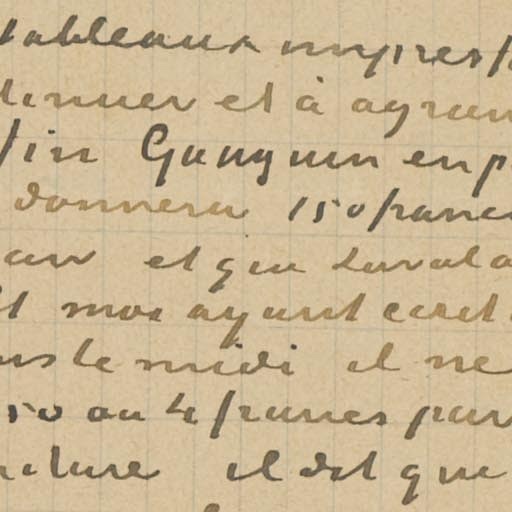 tableaux impres
tinuer et à agran
fin Gauguin en p
donnera 150 franc
an et que Laval a
et moi ayant écrit
ns le midi il ne
50 ou 4 francs par
nture il dit que